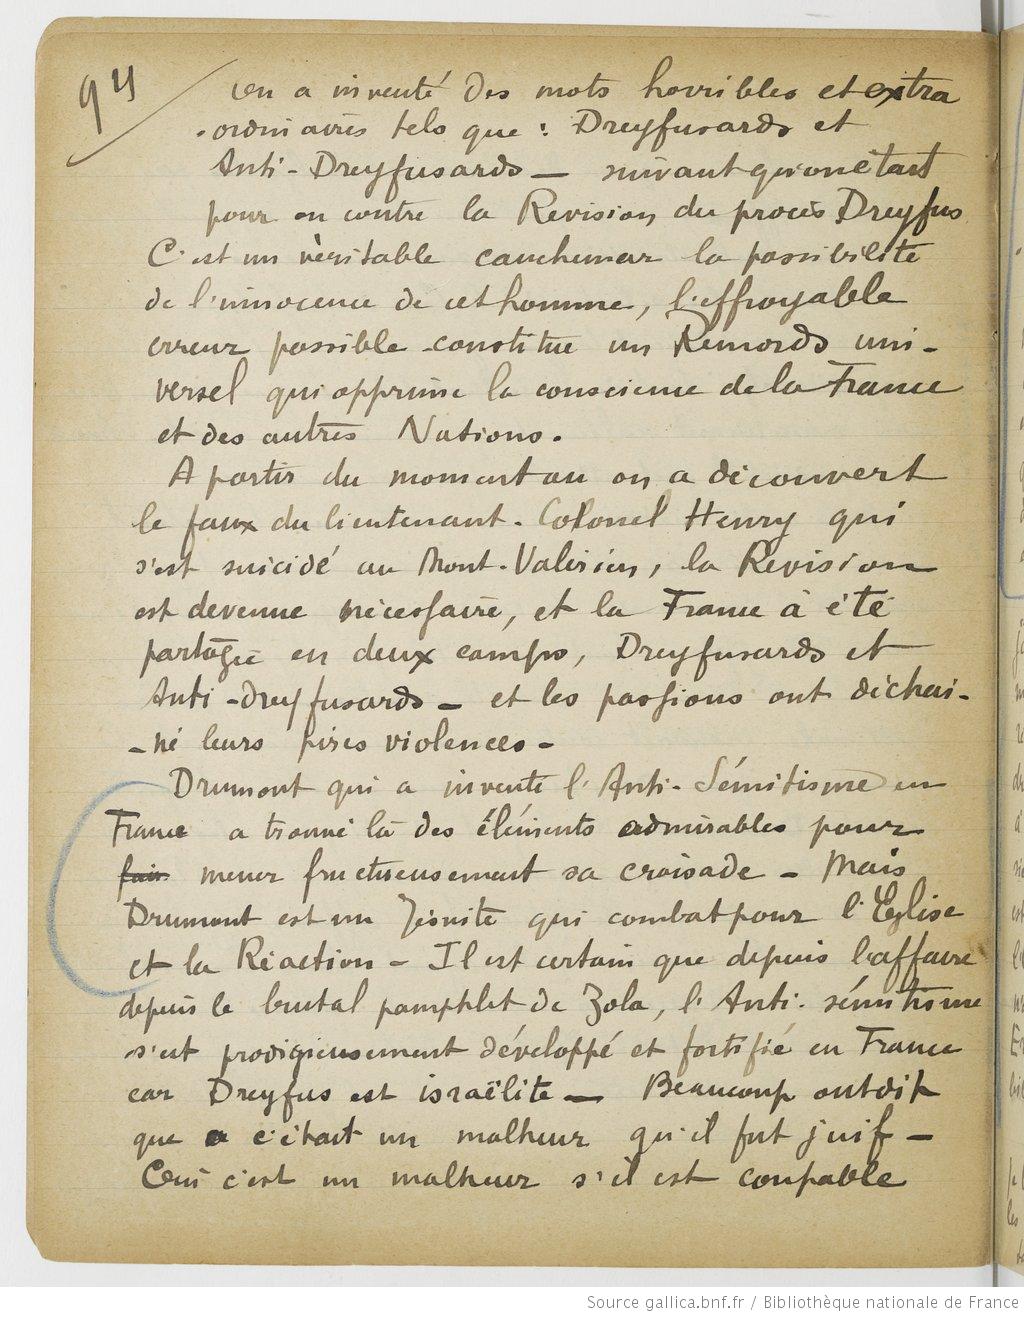 94
on a inventé des mots horribles et extra
-ordinaires tels que : Dreyfusards et
Anti-Dreyfusards — suivant qu'on était
pour ou contre la Revision du procès Dreyfus
C'est un véritable cauchemar la possibilité
de l'innocence de cet homme, l'effroyable
erreur possible constitue un Remords uni-
versel qui opprime la conscience de la France
et des autres Nations.
A partir du moment ou on a découvert
le faux du lieutenant-Colonel Henry qui
s'est suicidé au Mont-Valérien, la Revision
est devenue nécessaire, et la France à été
partagée en deux camps, Dreyfusards et
Anti-Dreyfusards — et les passions ont déchai-
-né leurs pires violences -
Drumont qui a inventé l'Anti-Sémitisme en
France a trouvé là des éléments admirables pour
fair mener fructueusement sa croisade - Mais
Drumont est un Jésuite qui combat pour l'Eglise
et la Réaction - Il est certain que depuis l'affaire
depuis le brutal pamphlet de Zola, l'Anti-sémitisme
s'est prodigieusement développé et fortifié en France
car Dreyfus est israëlite — Beaucoup ont dit
que c'était un malheur qu'il fut juif -
Oui c'est un malheur s'il est coupable
Source gallica.bnf.fr / Bibliothèque nationale de France